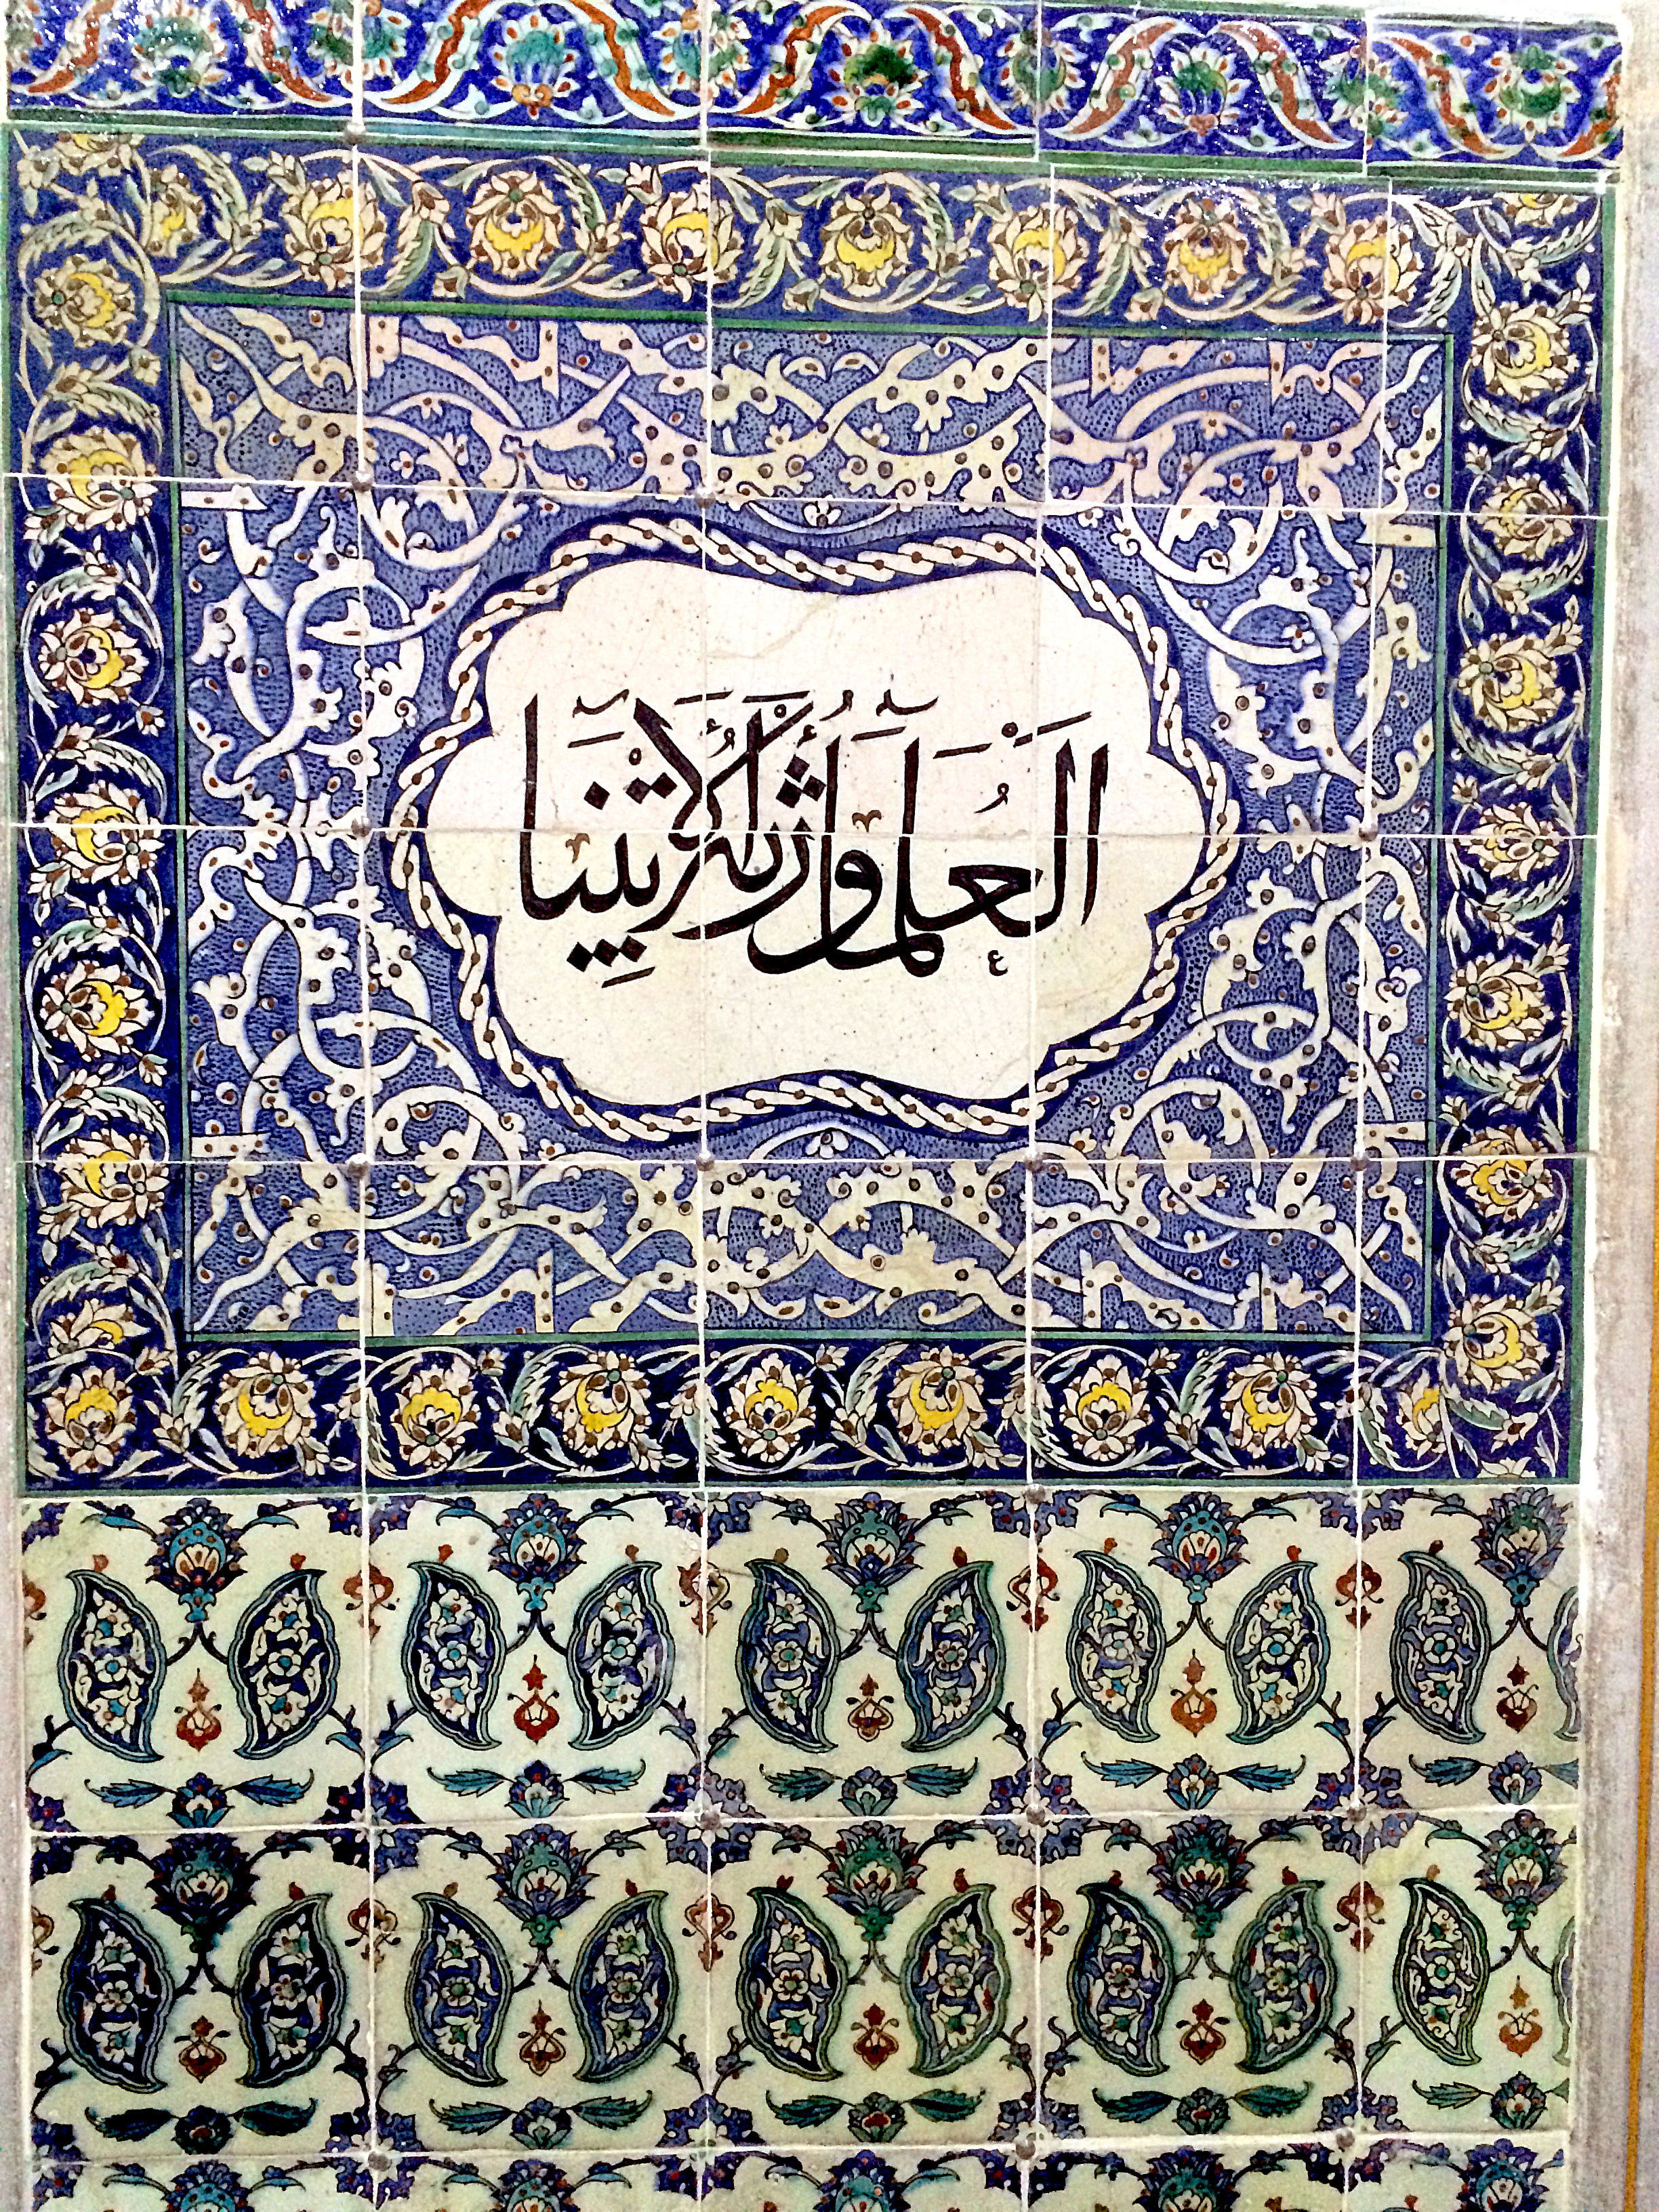 اَلْعُلَمَآءُ وَرَثَةُ الْاَنْبِيَآءِ